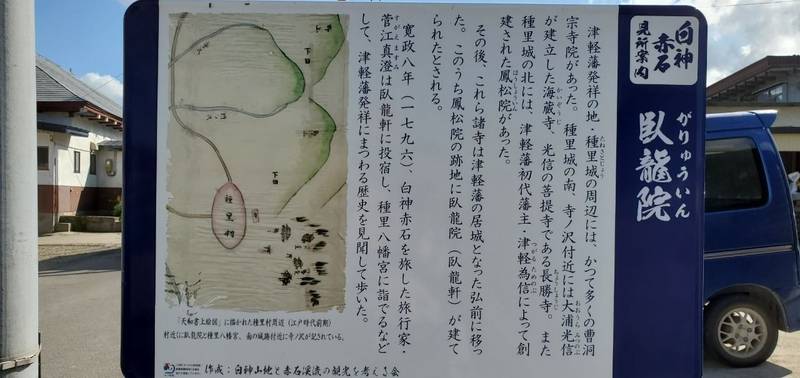 白神
赤石
見所案内
がりゅういん
臥龍院
津軽藩発祥の地・種里城の周辺には、かつて多くの曹洞
たねさとじょう
宗寺院があった。種里城の南、寺ノ沢付近には大浦光信
おおうらみつのぶ
が建立した海蔵寺、光信の菩提寺である長勝寺。また
かいぞうじ
ちょうしょうじ
種里城の北には、津軽藩初代藩主・津軽為信によって創
つがるためのぶ
建された鳳松院があった。
ほうしょういん
その後、これら諸寺は津軽藩の居城となった弘前に移っ
た。このうち鳳松院の跡地に臥龍院（臥龍軒）が建て
られたとされる。
寛政八年（一七九六）、白神赤石を旅した旅行家・
菅江真澄は臥龍軒に投宿し、種里八幡宮に詣でるなど
すがえますみ
して、津軽藩発祥にまつわる歴史を見聞して歩いた。
下田
下田
下田
種里村
「天和書上絵図」に描かれた種里村周辺（江戸時代前期）
村近くに臥龍院と種里八幡宮、南の城跡付近に寺ノ沢が記されている。
作成：白神山地と赤石渓流の観光を考える会